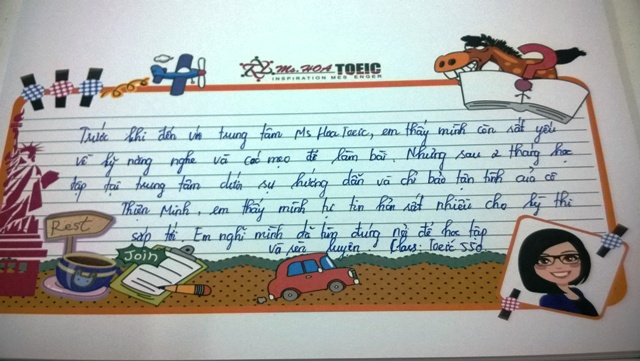 Ms. HOA TOEIC
INSPIRATION MESSENGER
Trước khi đến với trung tâm Ms Hoa Toeic, em thấy mình còn rất yếu
về kỹ năng nghe và các mẹo để làm bài. Nhưng sau 2 tháng học
tập tại trung tâm dưới sự hướng dẫn và chỉ bảo tận tình của cô
Thiên Minh, em thấy mình tự tin hơn rất nhiều cho kỳ thi
sắp tới. Em nghĩ mình đã tìm đúng nơi để học tập
và rèn luyện Class: Toeic 550
Rest
Join